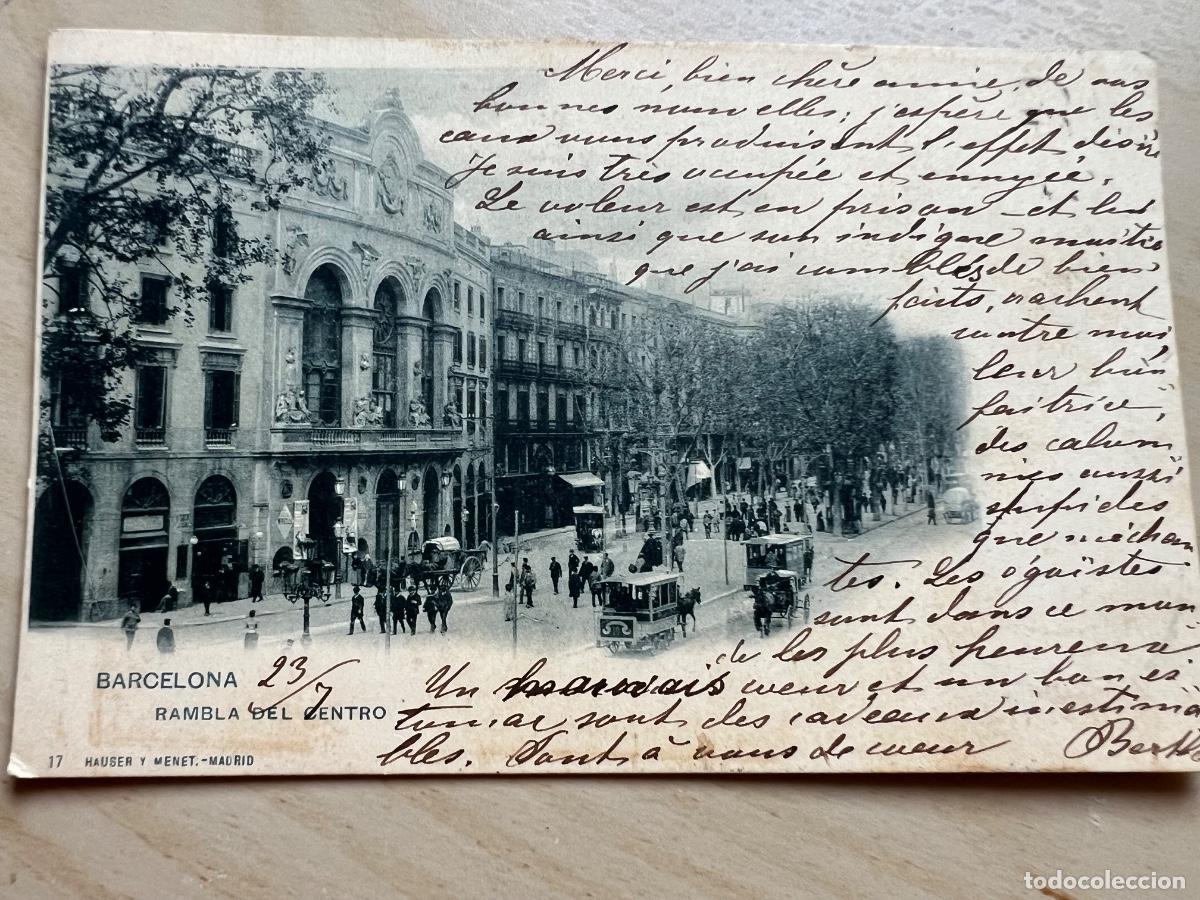 Merci, bien chère amie, de vos
bonnes nouvelles; j'espère que les
eaux vous produisent l'effet désiré
Je suis très occupée et ennyée.
Le voleur est en prison et lui
ainsi que son indigne maitre
que j'ai comblés de bien
faits, crachent
contre moi,
leur bien
faitrice,
des calom
nies aussi
stupides
que méchan
tes. Les égoïstes
sont dans ce mon
de les plus heureux
Un mauvais coeur et un bon es
tomac sont des cadeaux inestima
bles. Tout à vous de coeur Berthe
BARCELONA 23/7
RAMBLA DEL CENTRO
17 HAUSER Y MENET.-MADRID
todocoleccion